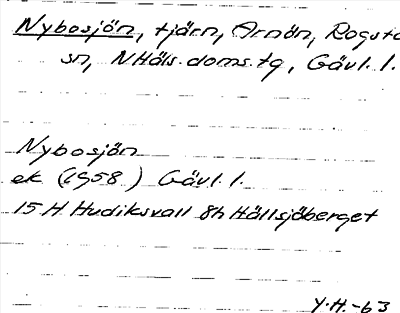 Nybosjön, tjärn, Arnön, Rogsta
sn, NHäls. doms. tg, Gävl. l.
Nybosjön
ek (1958) Gävl. l.
15 H Hudiksvall 8h Hällsjöberget
Y.H.-63